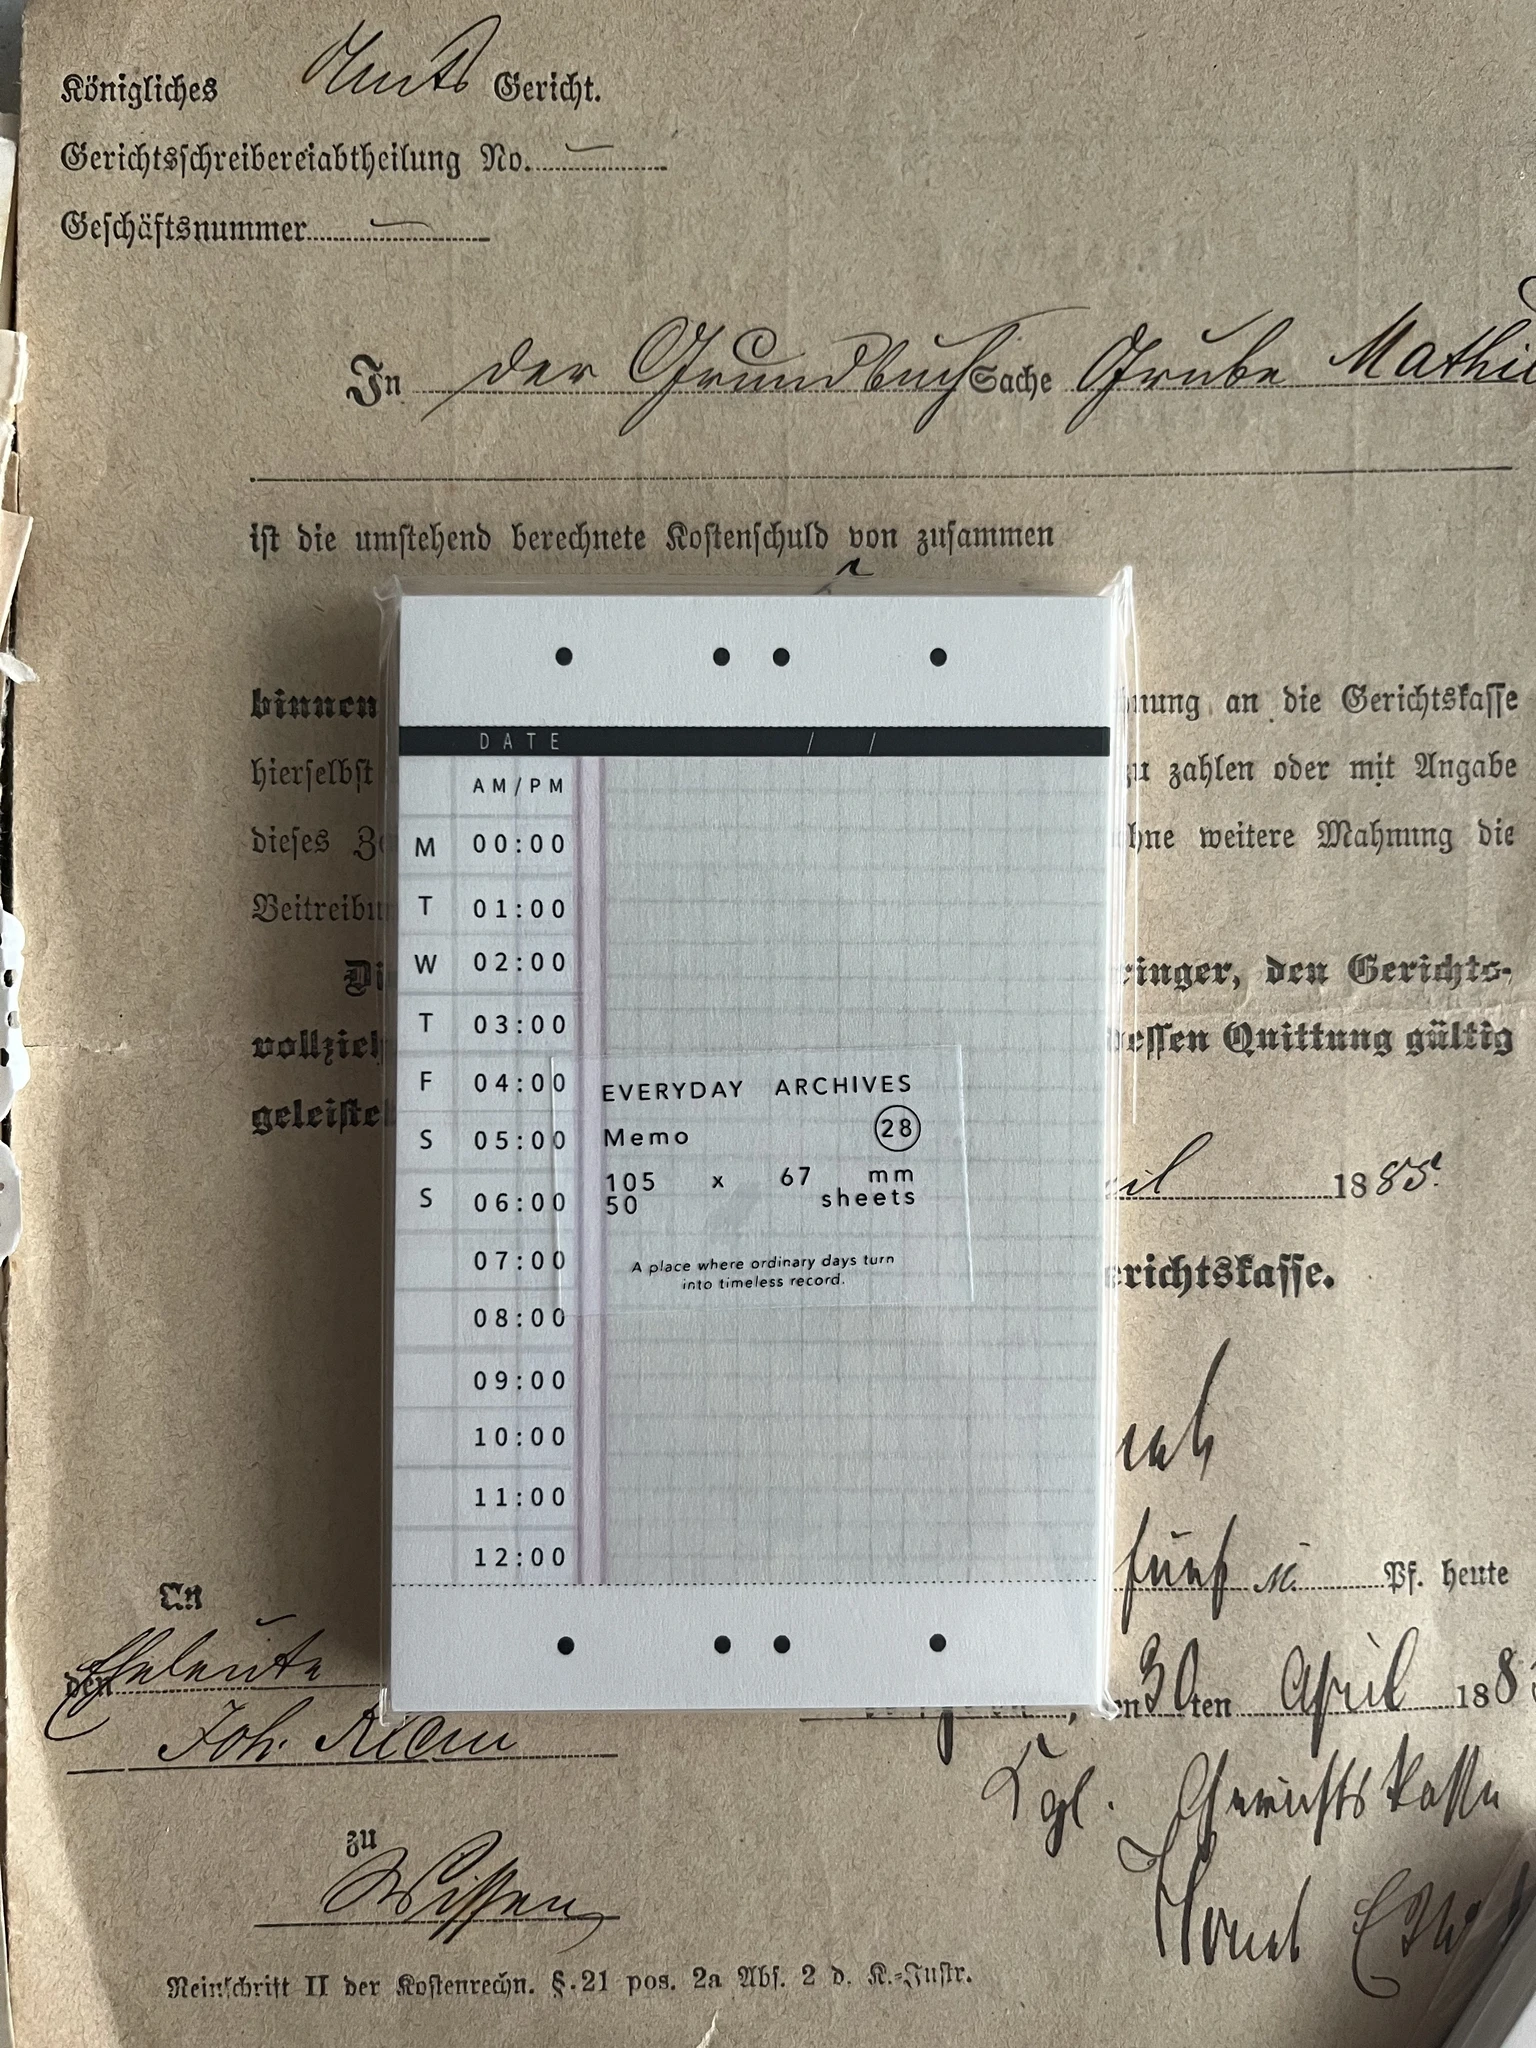 Königliches Amts Gericht.
Gerichtsschreibereiabtheilung No.
Geschäftsnummer
In der Grundbuch Sache Grube Mathi
ist die umstehend berechnete Kostenschuld von zusammen
binnen
nung an die Gerichtskasse
hierselbst
zu zahlen oder mit Angabe
dieses
ohne weitere Mahnung die
Beitreibu
Di
ringer, den Gerichts-
vollzieh
dessen Quittung gültig
geleistet
il 1885.
erichtskasse.
fünf M. Pf. heute
en 30ten April 188
Kgl. Gerichtskasse
An
den Eheleute
Joh. Klein
zu
Wissen
Reinschrift II der Kostenrechn. §. 21 pos. 2a Abs. 2 d. K.-Instr.
DATE / /
AM/PM
M 00:00
T 01:00
W 02:00
T 03:00
F 04:00
S 05:00
S 06:00
07:00
08:00
09:00
10:00
11:00
12:00
EVERYDAY ARCHIVES
Memo 28
105 x 67 mm
50 sheets
A place where ordinary days turn
into timeless record.